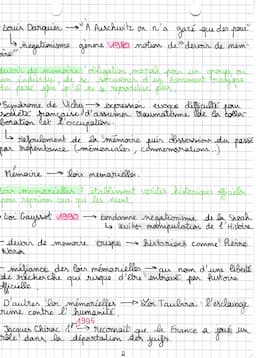 Louis Darquier → "A Auschwitz on n'a gazé que des poux"
↳ negationnisme génère 1980 notion de "devoir de mémoire"
devoir de mémoire: obligation morale pour un groupe ou
un individu de se souvenir d'un évènement tragique
du passé afin qu'il ne se reproduise plus.
Syndrome de Vichy → expression évoque difficulté pour
société française d'assumer traumatisme de la collaboration
et l'occupation
↳ refoulement de la mémoire puis obsession du passé
par repentance (mémoriales, commemorations...)
Mémoire → lois mémorielles.
lois memorielles: établissent vérités historiques officielles
pour réprimer ceux qui les nient
Loi Gayssot 1990 → condamne negationisme de la Shoah
↳ eviter manipulation de l'Histoire
- devoir de memoire critiqué → historiens comme Pierre
Nora
- méfiance des lois mémorielles → au nom d'une liberté
de recherche qui risque d'être entravé par histoire
officielle
D'autres lois mémorielles → Loi Taubira: l'esclavage
crime contre l'humanité
Jacques Chirac 1er → 1995 reconnait que la France a joué un
rôle dans la déportation des juifs
2